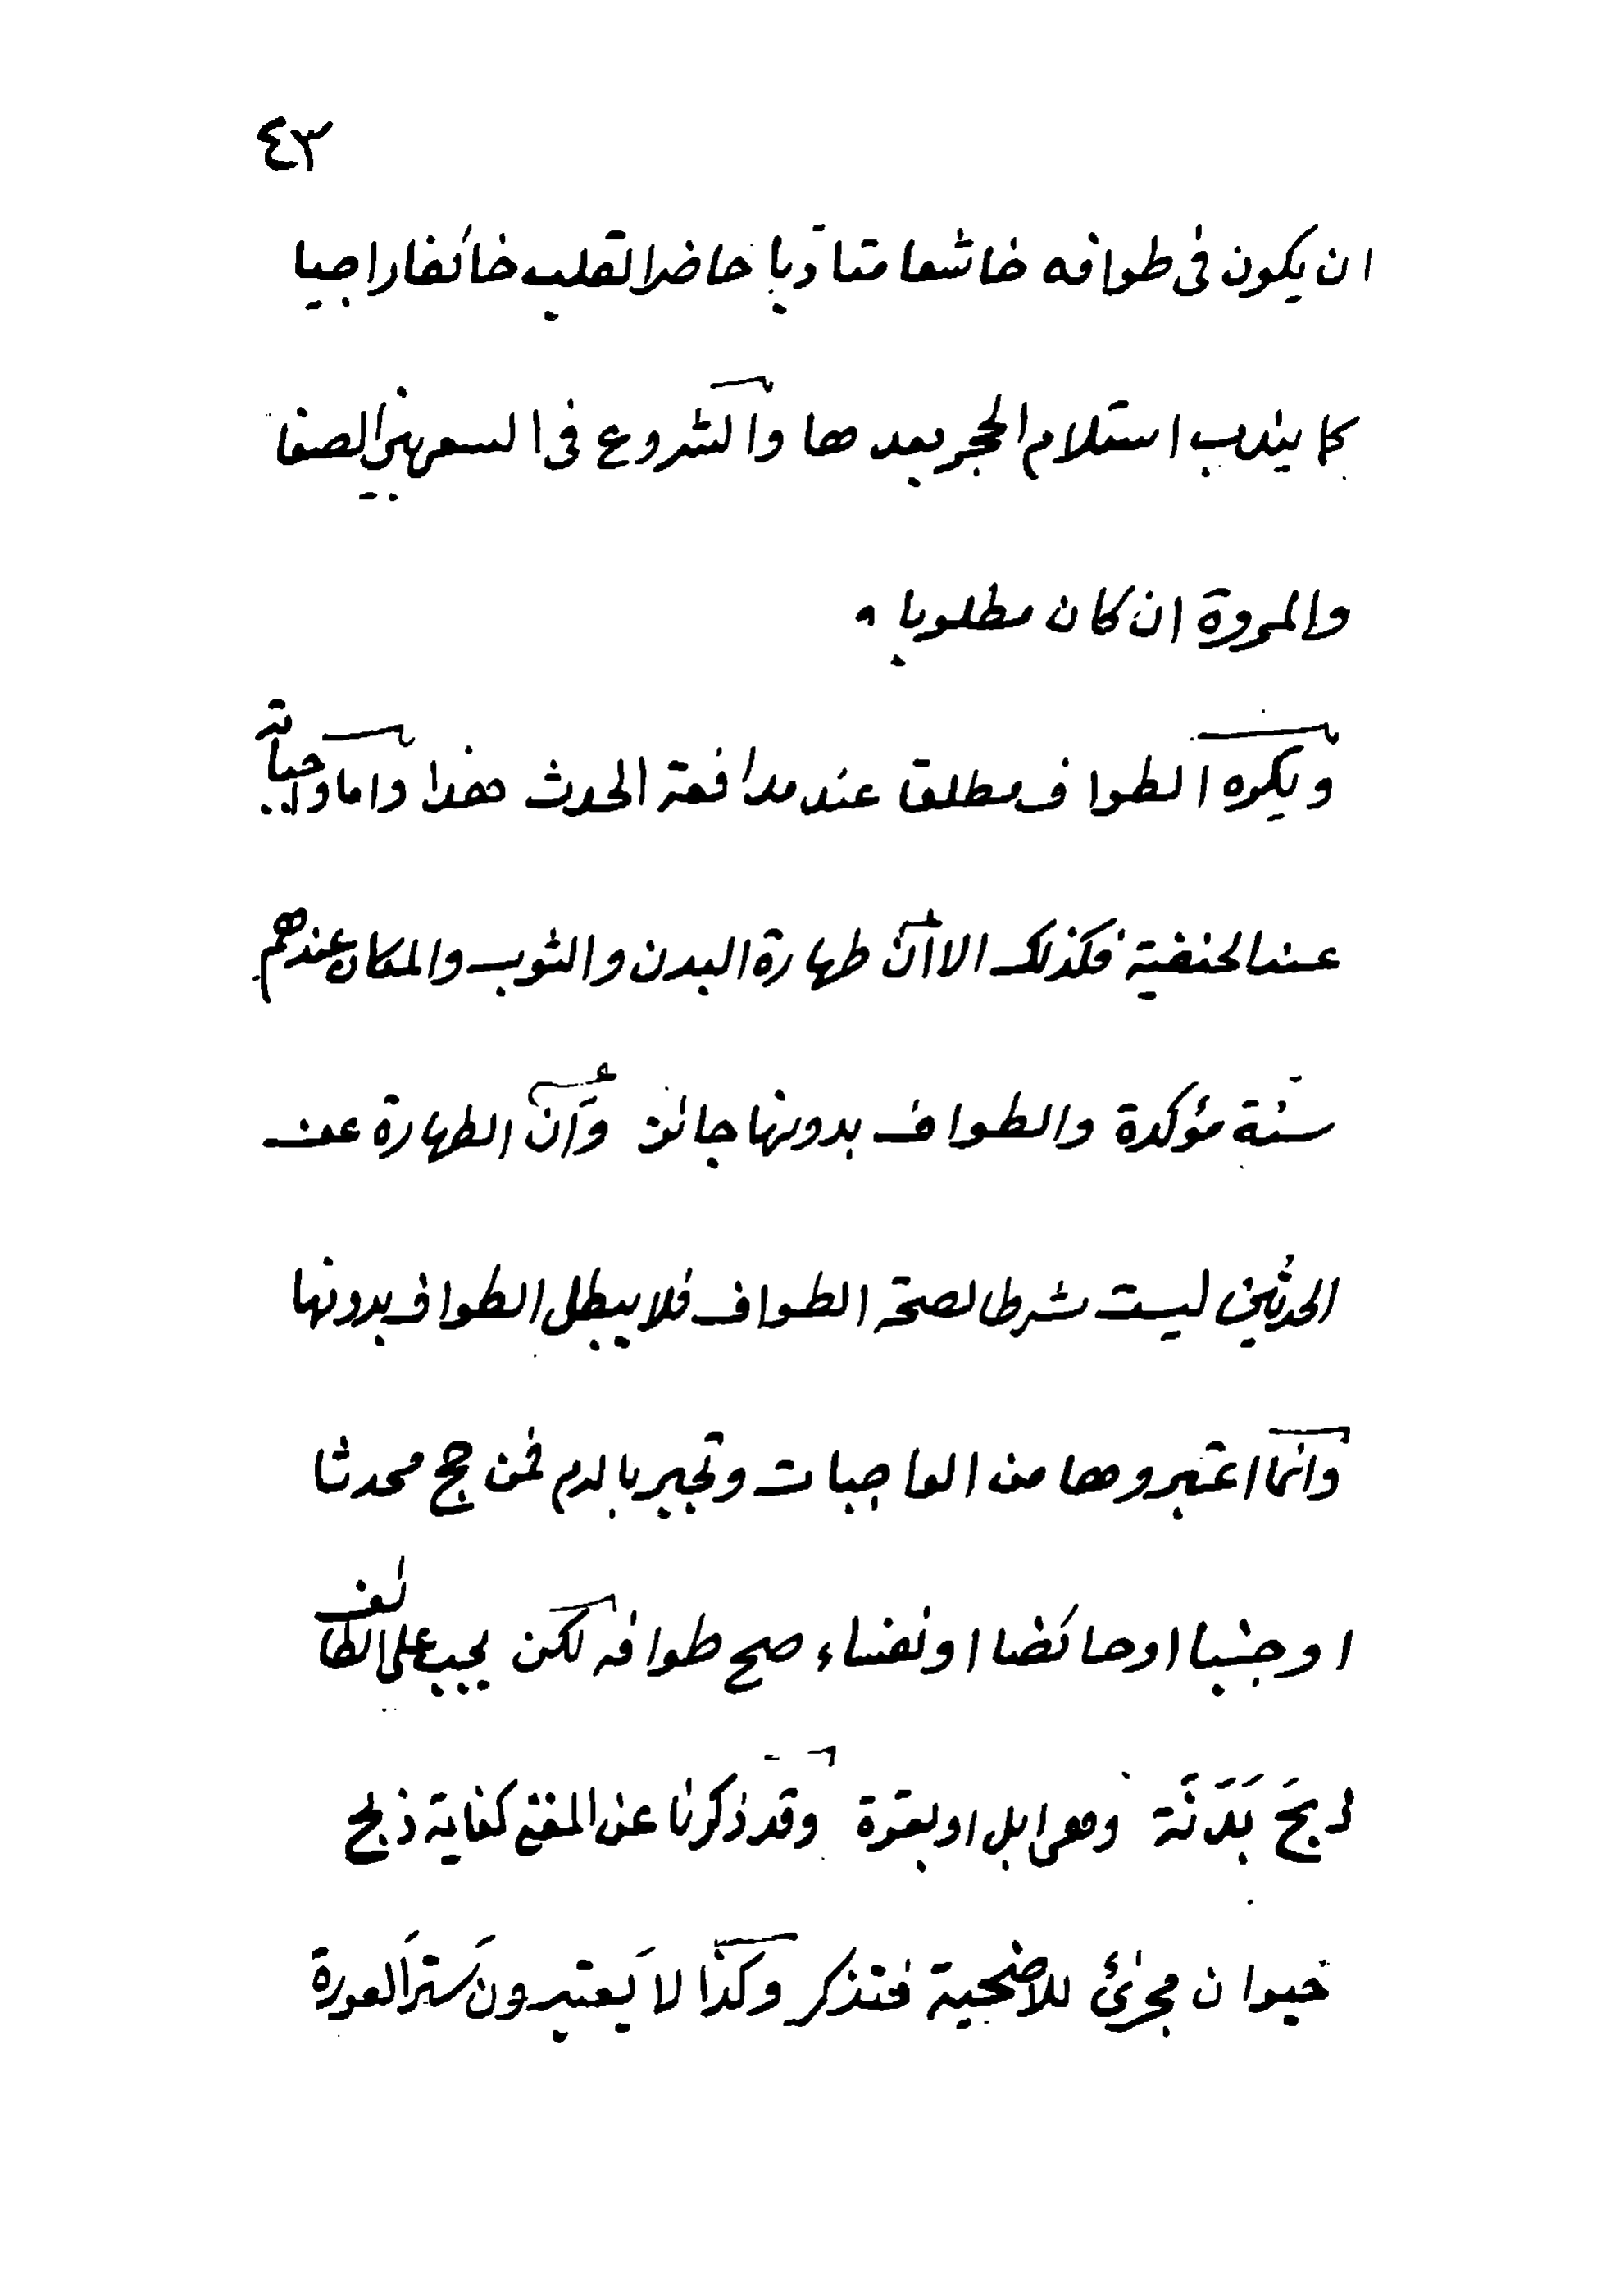 ٤٣
ان يكون فى طوافه خاشعا متأدّبا حاضر القلب خائفا راجيا
كما يندب استلام الحجر بعدها والشروع فى السعى بين الصفا
والمروة ان كان مطلوبا .
ويكره الطواف مطلقا عند مدافعة الحدث هذا واما واجباته
عند الحنفية فكذلك الا أنّ طهارة البدن والثوب والمكان عندهم
سنّة مؤكدة والطواف بدونها جائز وأنّ الطهارة عن
الحدثين ليست شرطا لصحة الطواف فلا يبطل الطواف بدونها
وانما اعتبروها من الواجبات وتجبر بالدم فمن حج محدثا
او جنبا او حائضا او نفساء صح طوافه لكن يجب على الطائف
ذبحَ بَدَنَة وهى ابل او بقرة وقد ذكرنا عن المغنى كفاية ذبح
حيوان مجزئ للاضحية فتذكر وكذا لا يَعتبرونَ سترَ العورة